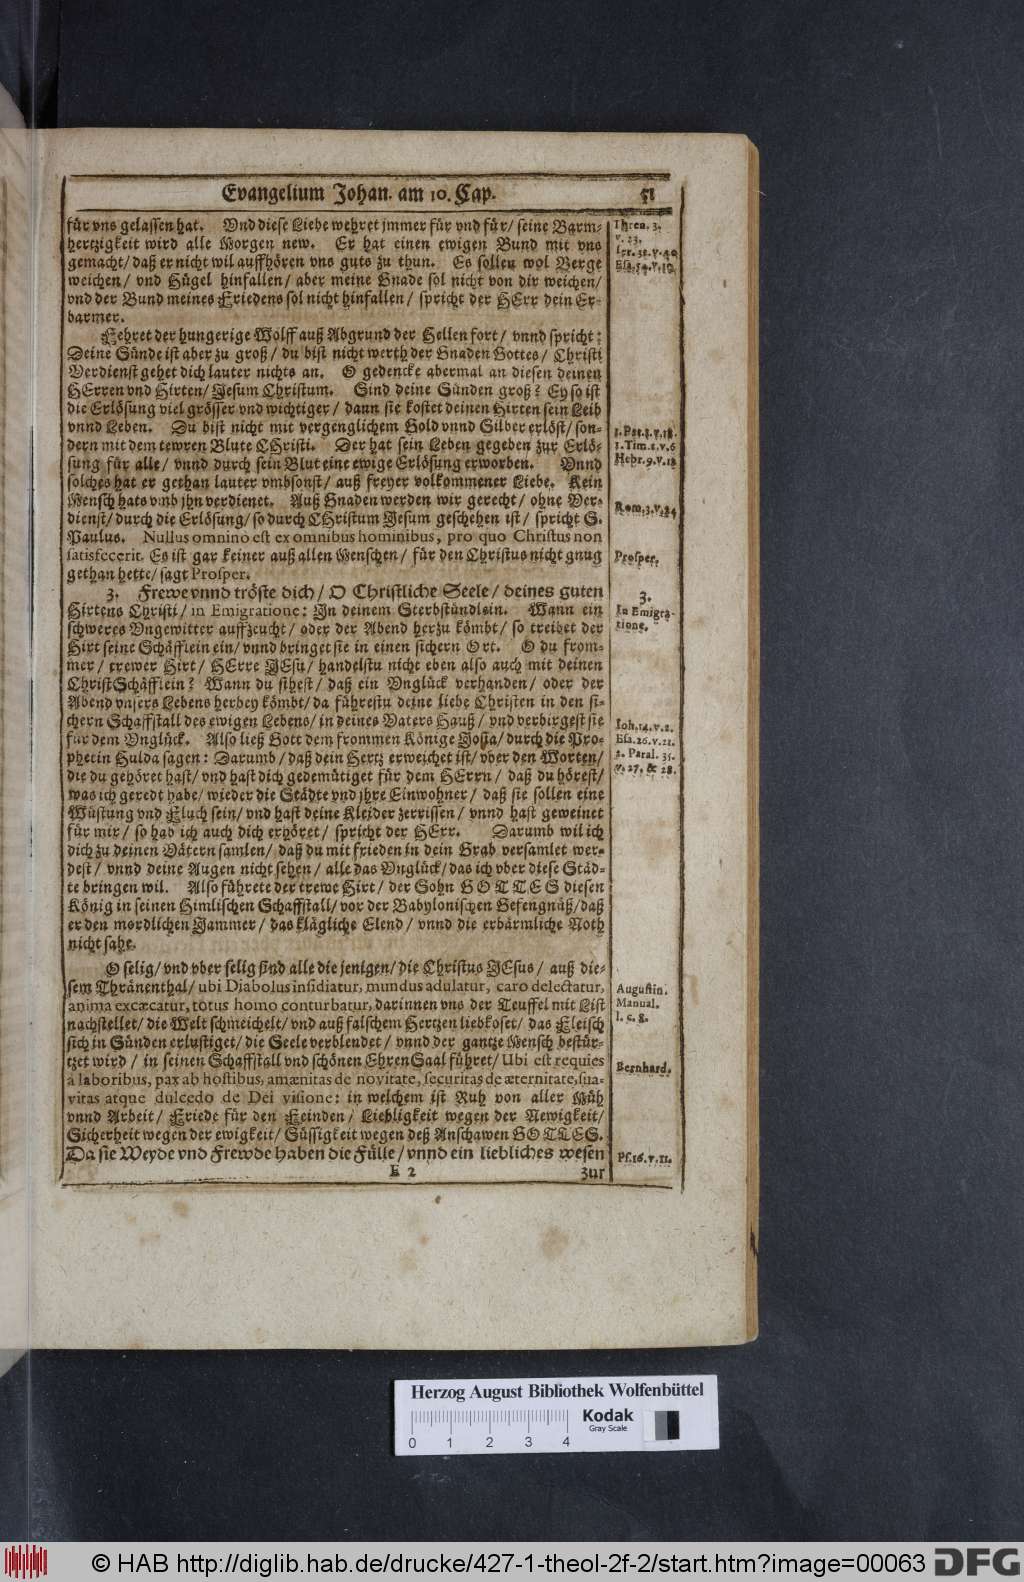 Evangelium Johan. am 10. Cap. 51
für vns gelassen hat. Vnd diese Liebe wehret jmmer für vnd für/ seine Barm-
hertzigkeit wird alle Morgen new. Er hat einen ewigen Bund mit vns
gemacht/ daß er nicht wil auffhören vns guts zu thun. Es sollen wol Berge
weichen/ vnd Hügel hinfallen/ aber meine Gnade sol nicht von dir weichen/
vnd der Bund meines Friedens sol nicht hinfallen/ spricht der HErr dein Er-
barmer.
Thren. 3.
v. 23.
Ier. 32. v. 40
Esa. 54. v. 10.
Fehret der hungerige Wolff auß Abgrund der Hellen fort/ vnnd spricht:
Deine Sünde ist aber zu groß/ du bist nicht werth der Gnaden Gottes/ Christi
Verdienst gehet dich lauter nichts an. O gedencke abermal an diesen deinen
HErren vnd Hirten/ Jesum Christum. Sind deine Sünden groß? Ey so ist
die Erlösung viel grösser vnd wichtiger/ dann sie kostet deinen Hirten sein Leib
vnnd Leben. Du bist nicht mit vergenglichem Gold vnnd Silber erlöst/ son-
dern mit dem tewren Blute CHristi. Der hat sein Leben gegeben zur Erlö-
sung für alle/ vnnd durch sein Blut eine ewige Erlösung erworben. Vnnd
solches hat er gethan lauter vmbsonst/ auß freyer volkommener Liebe. Kein
Mensch hats vmb jhn verdienet. Auß Gnaden werden wir gerecht/ ohne Ver-
dienst/ durch die Erlösung/ so durch CHristum Jesum geschehen ist/ spricht S.
Paulus. Nullus omnino est ex omnibus hominibus, pro quo Christus non
satisfecerit. Es ist gar keiner auß allen Menschen/ für den Christus nicht gnug
gethan hette/ sagt Prosper.
1. Pet. 1. v. 18.
1. Tim. 2. v. 6
Hebr. 9. v. 12
Rom. 3. v. 24
Prosper.
3. Frewe vnnd tröste dich/ O Christliche Seele/ deines guten
Hirtens Christi/ in Emigratione: In deinem Sterbstündlein. Wann ein
schweres Vngewitter auffzeucht/ oder der Abend herzu kömbt/ so treibet der
Hirt seine Schäfflein ein/ vnnd bringet sie in einen sichern Ort. O du from-
mer/ trewer Hirt/ HErre JEsu/ handelstu nicht eben also auch mit deinen
ChristSchäfflein? Wann du sihest/ daß ein Vnglück verhanden/ oder der
Abend vnsers Lebens herbey kömbt/ da führestu deine liebe Christen in den si-
chern Schaffstall des ewigen Lebens/ in deines Vaters Hauß/ vnd verbirgest sie
für dem Vnglück. Also ließ Gott dem frommen Könige Josia/ durch die Pro-
phetin Hulda sagen: Darumb/ daß dein Hertz erweichet ist/ vber den Worten/
die du gehöret hast/ vnd hast dich gedemütiget für dem HErrn/ daß du hörest/
was ich geredt habe/ wieder die Städte vnd jhre Einwohner/ daß sie sollen eine
Wüstung vnd Fluch sein/ vnd hast deine Kleider zerrissen/ vnnd hast geweinet
für mir/ so hab ich auch dich erhöret/ spricht der HErr. Darumb wil ich
dich zu deinen Vätern samlen/ daß du mit frieden in dein Grab versamlet wer-
dest/ vnnd deine Augen nicht sehen/ alle das Vnglück/ das ich vber diese Städ-
te bringen wil. Also führete der trewe Hirt/ der Sohn GOTTES diesen
König in seinen Himlischen Schaffstall/ vor der Babylonischen Gefengnüß/ daß
er den mördlichen Jammer/ das klägliche Elend/ vnnd die erbärmliche Noth
nicht sahe.
3.
In Emigra-
tione.
Ioh. 14. v. 2.
Esa. 26. v. 21.
2. Paral. 35.
v. 27. & 28.
O selig/ vnd vber selig sind alle die jenigen/ die Christus JEsus/ auß die-
sem Thränenthal/ ubi Diabolus insidiatur, mundus adulatur, caro delectatur,
anima excæcatur, totus homo conturbatur, darinnen vns der Teuffel mit List
nachstellet/ die Welt schmeichelt/ vnd auß falschem Hertzen liebkoset/ das Fleisch
sich in Sünden erlustiget/ die Seele verblendet/ vnnd der gantze Mensch bestür-
tzet wird/ in seinen Schaffstall vnd schönen EhrenSaal führet/ Ubi est requies
à laboribus, pax ab hostibus, amænitas de novitate, securitas de æternitate, sua-
vitas atque dulcedo de Dei visione: in welchem ist Ruh von aller Müh
vnnd Arbeit/ Friede für den Feinden/ Liebligkeit wegen der Newigkeit/
Sicherheit wegen der ewigkeit/ Süssigkeit wegen deß Anschawen GOTTES.
Da sie Weyde vnd Frewde haben die Fülle/ vnnd ein liebliches wesen
Augustin.
Manual.
l. c. 8.
Bernhard.
Ps. 16. v. 11.
E 2 zur
Herzog August Bibliothek Wolfenbüttel
Kodak
Gray Scale
0 1 2 3 4
© HAB http://diglib.hab.de/drucke/427-1-theol-2f-2/start.htm?image=00063
DFG